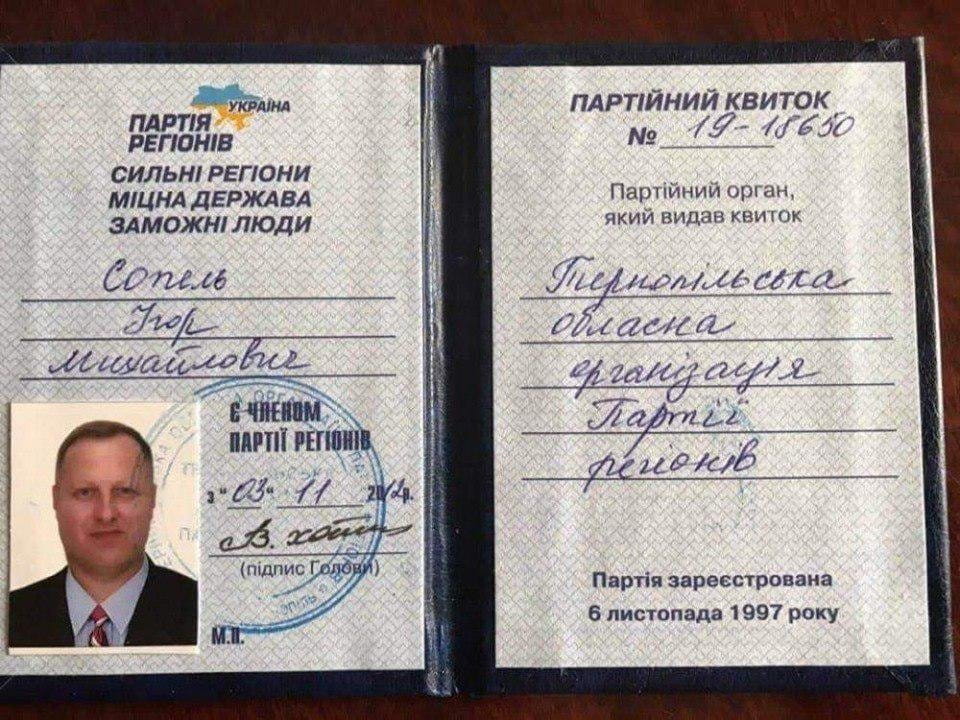 УКРАЇНА
ПАРТІЯ
РЕГІОНІВ
СИЛЬНІ РЕГІОНИ
МІЦНА ДЕРЖАВА
ЗАМОЖНІ ЛЮДИ
Сопель
Ігор
Михайлович
Є ЧЛЕНОМ
ПАРТІЇ РЕГІОНІВ
з "03" 11 2012р.
(підпис Голови)
М.П.
ПАРТІЙНИЙ КВИТОК
№ 19-18650
Партійний орган,
який видав квиток
Тернопільська
обласна
організація
Партії
регіонів
Партія зареєстрована
6 листопада 1997 року